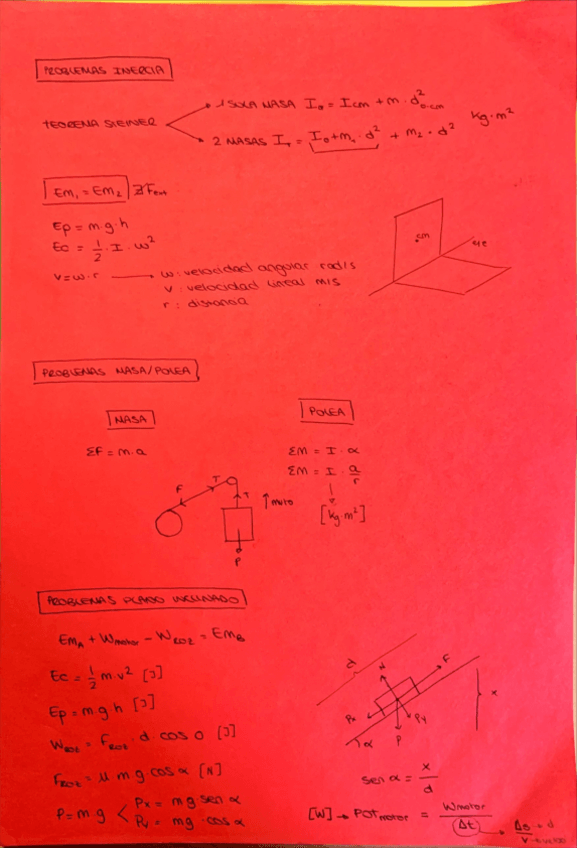 PROBLEMAS INERCIA
TEOREMA STEINER
1 SOLA MASA I₀ = Icm + m · d²o-cm
2 MASAS I_T = I₀ + m₁ · d² + m₂ · d² kg·m²
Em₁ = Em₂ ∄ Fext
Ep = m·g·h
Ec = 1/2 · I · ω²
v = ω·r → ω: velocidad angular rad/s
v: velocidad lineal m/s
r: distancia
cm
eje
PROBLEMAS MASA/POLEA
MASA
POLEA
ΣF = m·a
ΣM = I · α
ΣM = I · a/r
[kg·m²]
F T T ↑ movto
P
PROBLEMAS PLANO INCLINADO
Em_A + Wmotor - W_ROZ = Em_B
Ec = 1/2 m·v² [J]
Ep = m·g·h [J]
W_ROZ = F_ROZ · d · cos 0 [J]
F_ROZ = μ m g cos α [N]
P = m·g < Px = mg sen α
Py = mg · cos α
d
N
F
x
Px
Py
P
α
sen α = x/d
[W] → POTmotor = Wmotor / Δt → Δt = d / v